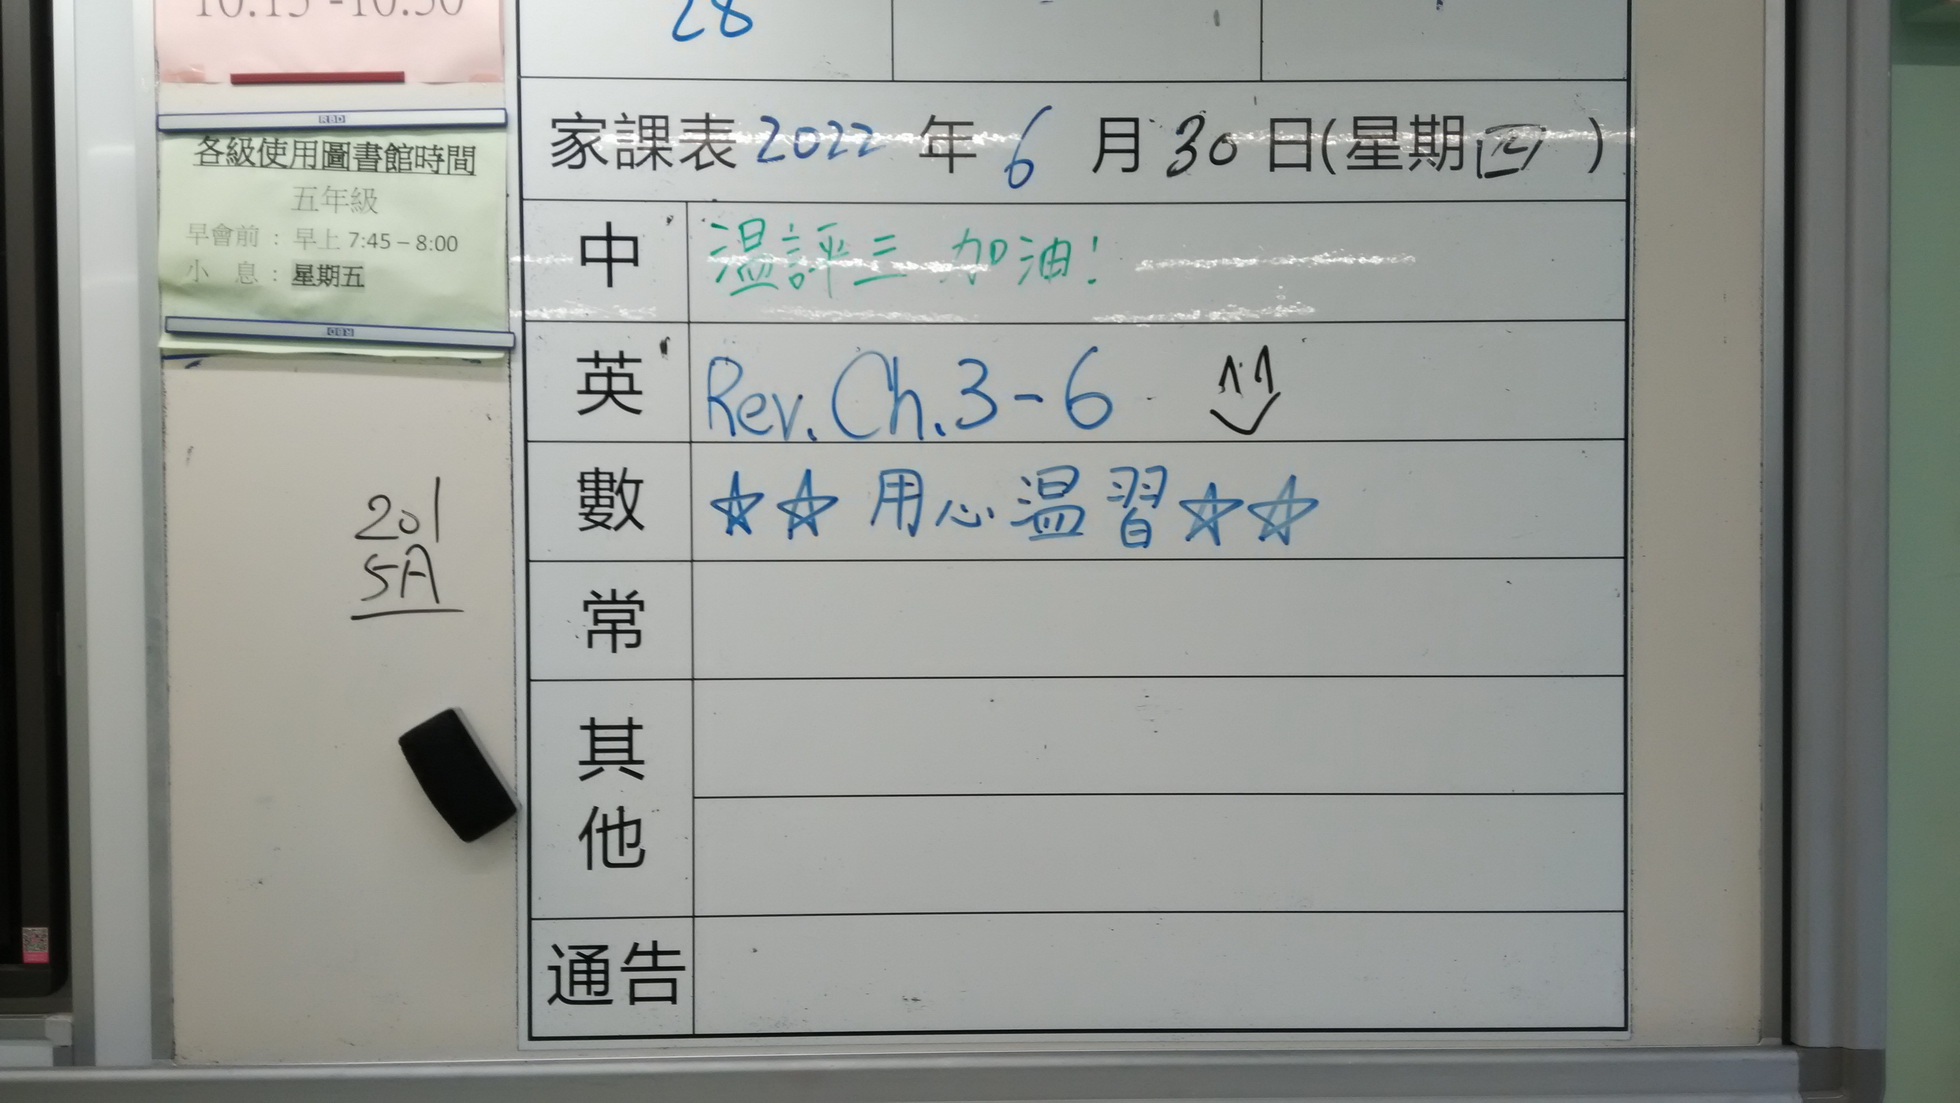 10:15 -10:30
28
各級使用圖書館時間
五年級
早會前：早上 7:45 – 8:00
小 息：星期五
家課表 2022 年 6 月 30 日(星期四)
中 温評三 加油!
英 Rev. Ch. 3-6
數 ☆☆ 用心温習 ☆☆
常
其他
通告
201
5A